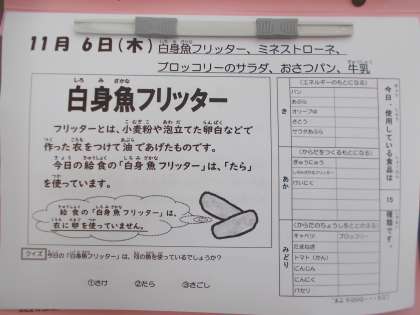 11月6日(木)白身魚フリッター、ミネストローネ、
ブロッコリーのサラダ、おさつパン、牛乳
しろみざかな
白身魚フリッター
フリッターとは、小麦粉や泡立てた卵白などで
作った衣をつけて油であげたものです。
今日の給食の「白身魚フリッター」は、「たら」
を使っています。
給食の「白身魚フリッター」は、
衣に卵を使っていません。
クイズ
今日の「白身魚フリッター」は、何の魚を使っているでしょうか?
①さけ ②たら ③さごし
今日、使用している食品は 15 種類です。
き
(エネルギーのもとになる)
パン
あぶら
オリーブ油
さとう
サラダあぶら
あか
(からだをつくるもとになる)
ぎゅうにゅう
しろみざかなフリッター
だいにく
みどり
(からだのちょうしをととのえる)
キャベツ ブロッコリー
たまねぎ
トマト(かん)
にんじん
にんにく
パセリ